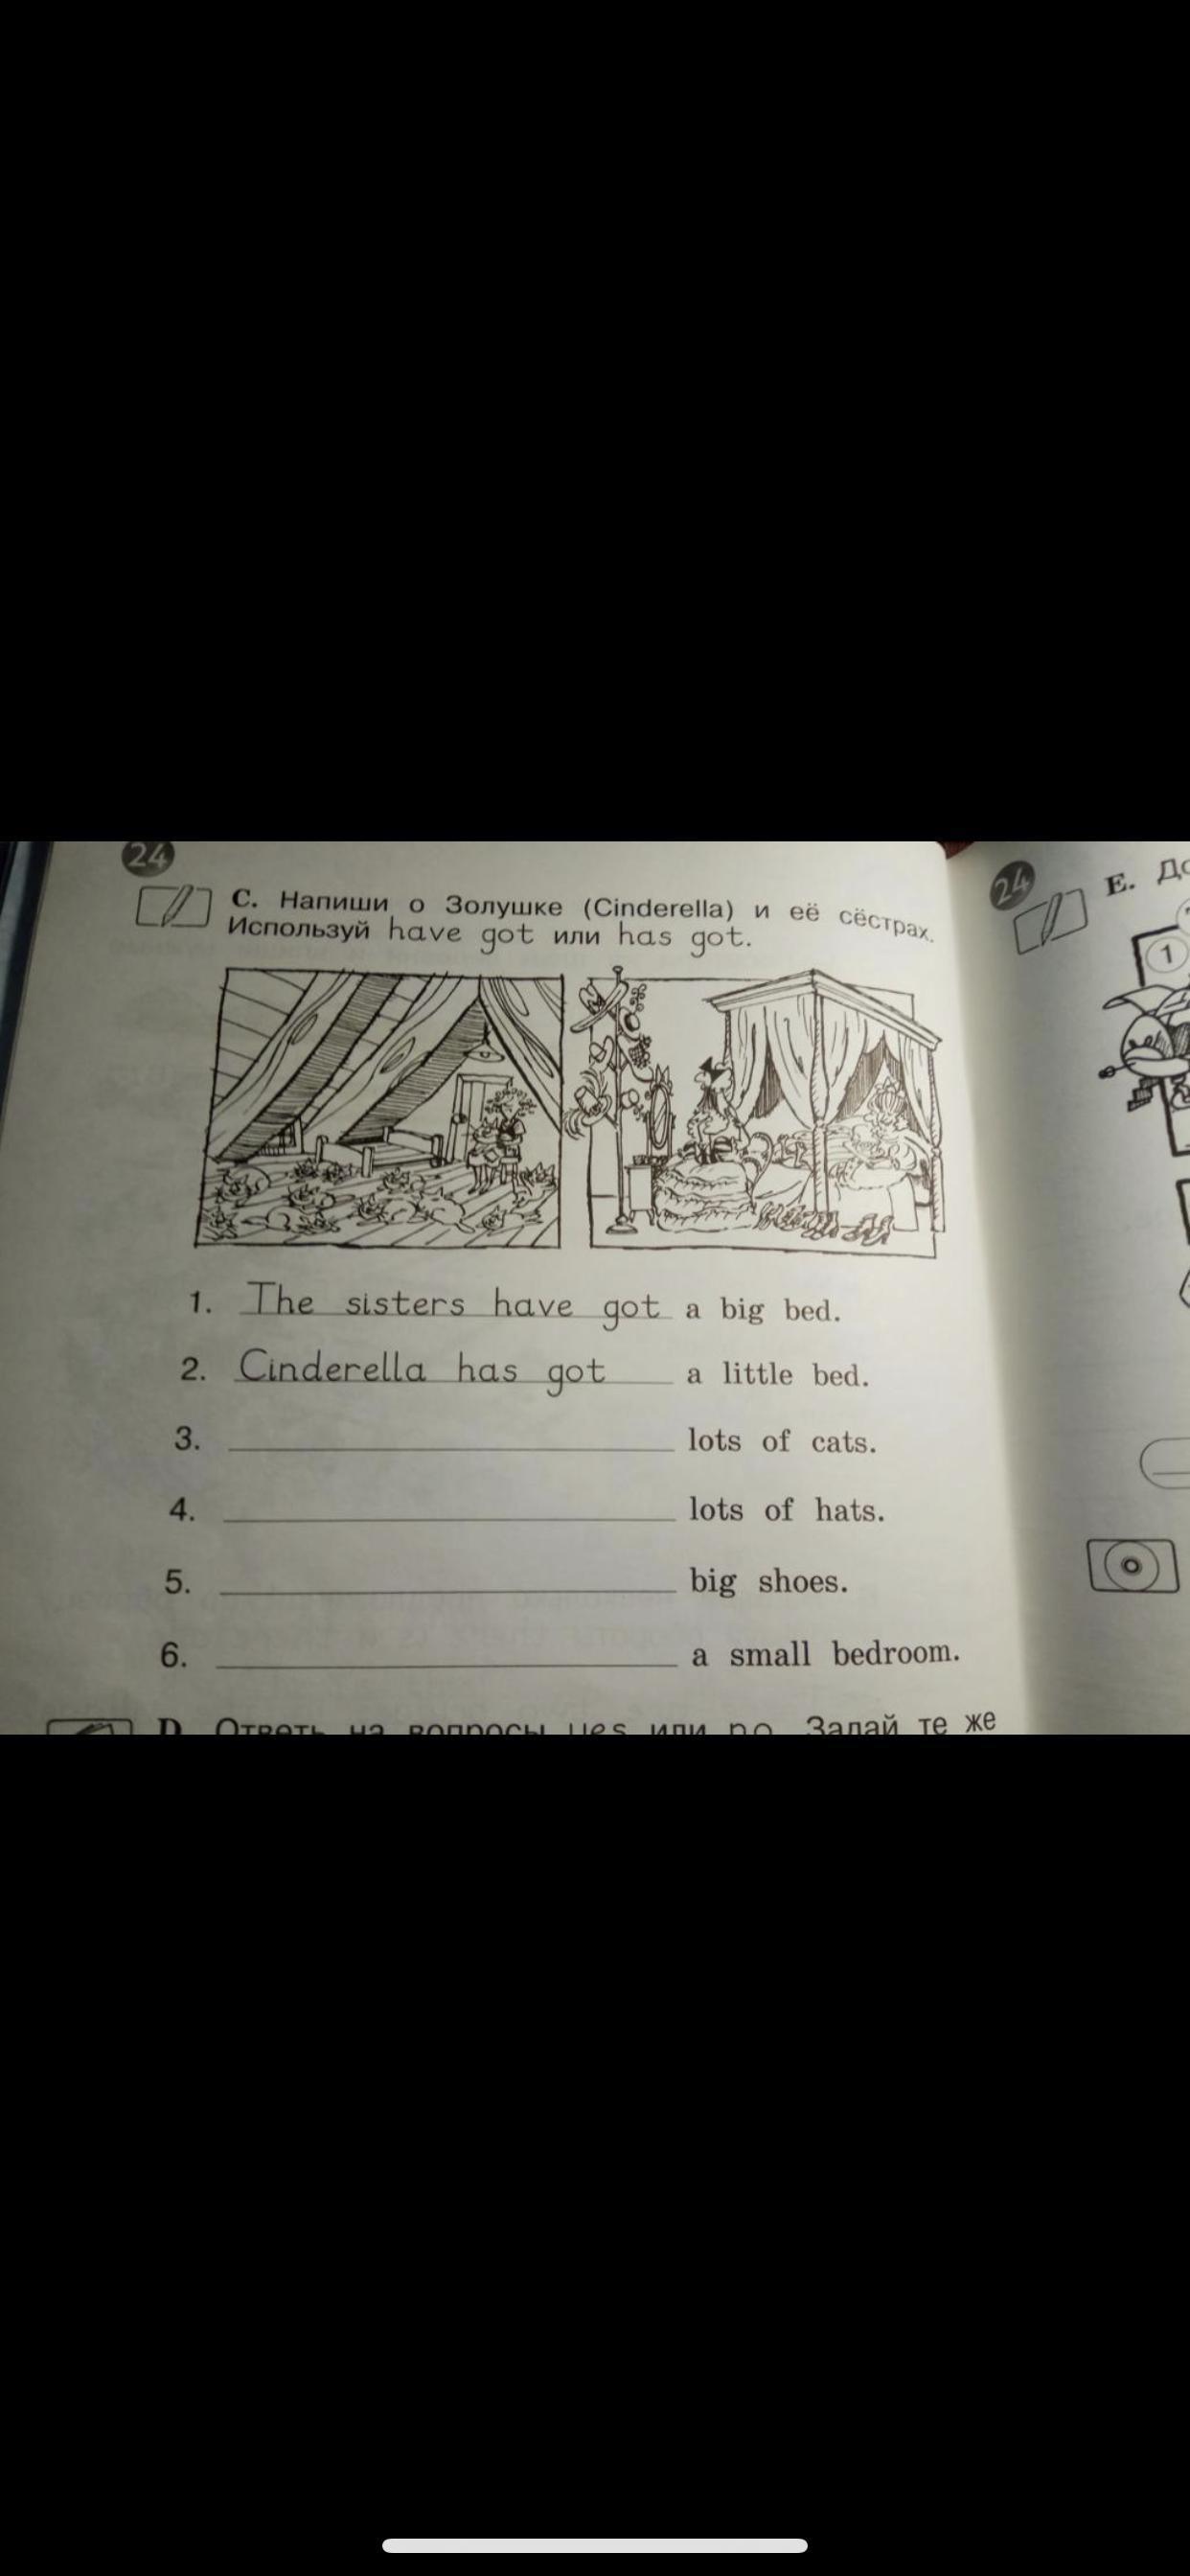 24
C. Напиши о Золушке (Cinderella) и её сёстрах.
Используй have got или has got.
1. The sisters have got a big bed.
2. Cinderella has got a little bed.
3. lots of cats.
4. lots of hats.
5. big shoes.
6. a small bedroom.
D Ответь на вопросы yes или no. Задай те же
24
E.
1